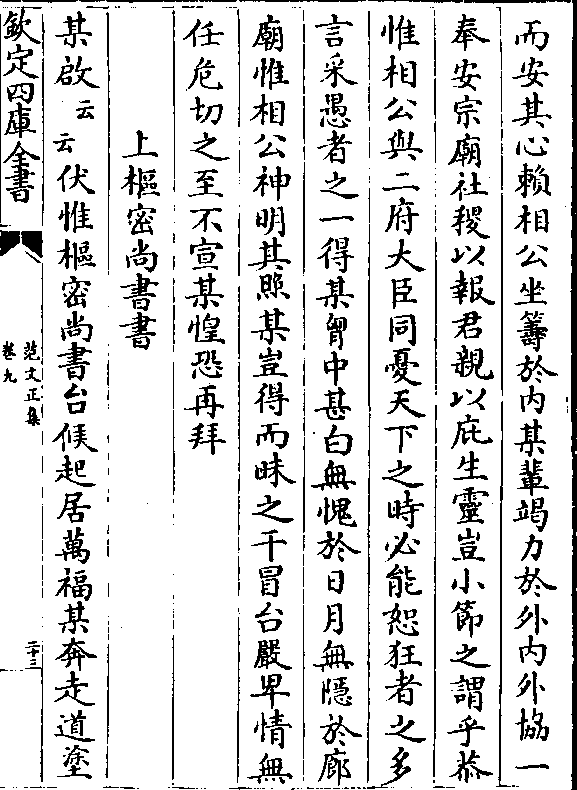 而安其心賴相公坐籌於内某輩竭力於外内外協一
奉安宗廟社稷以報君親以庇生靈豈小節之謂乎恭
惟相公與二府大臣同憂天下之時必能恕狂者之多
言采愚者之一得某胷中甚白無愧於日月無隱於廊
廟惟相公神明其照某豈得而昧之干冒台嚴卑情無
任危切之至不宣某惶恐再拜
上樞密尚書書
某啟云云伏惟樞密尚書台候起居萬福某奔走道塗
欽定四庫全書
范文正集
卷九
二十三